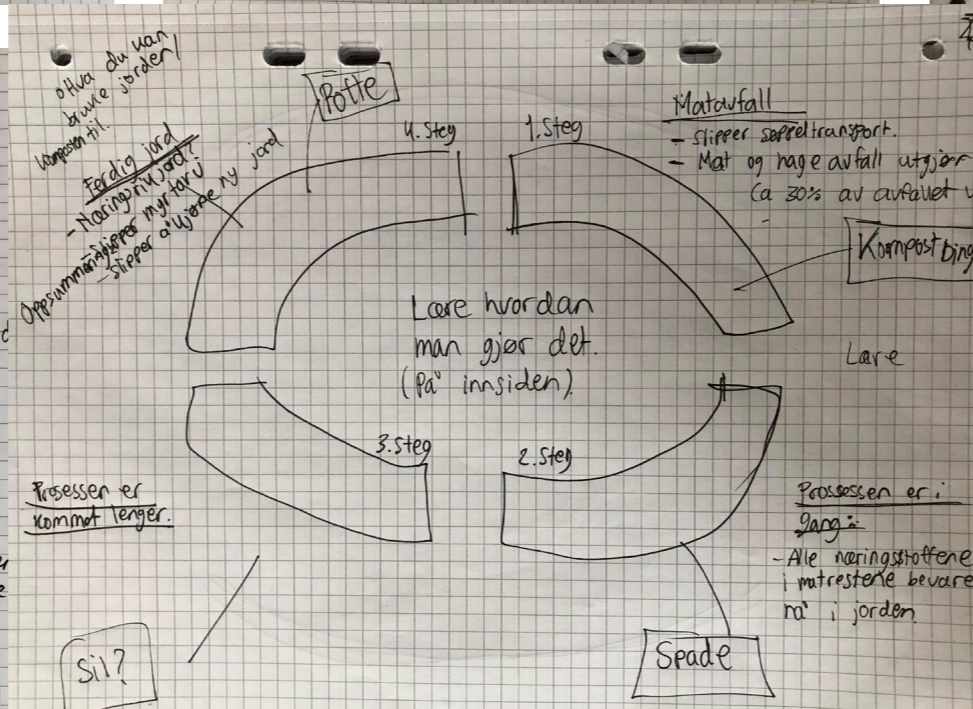 Hva du kan
bruke jorden/
komposten til.
Ferdig jord
- Næringsrik jord?
- Slipper myrtorv
- Slipper å kjøpe ny jord
Oppsummering
Potte
4. Steg
1. Steg
Matavfall
- Slipper søppeltransport.
- Mat og hage avfall utgjør
Ca 30% av avfallet
Kompostbing
Lære hvordan
man gjør det.
(På innsiden).
Lare
3. Steg
2. Steg
Prosessen er
kommet lenger.
Prossessen er i
gang:
- Alle næringsstoffene
i matrestene bevare
nå i jorden
Sil?
Spade